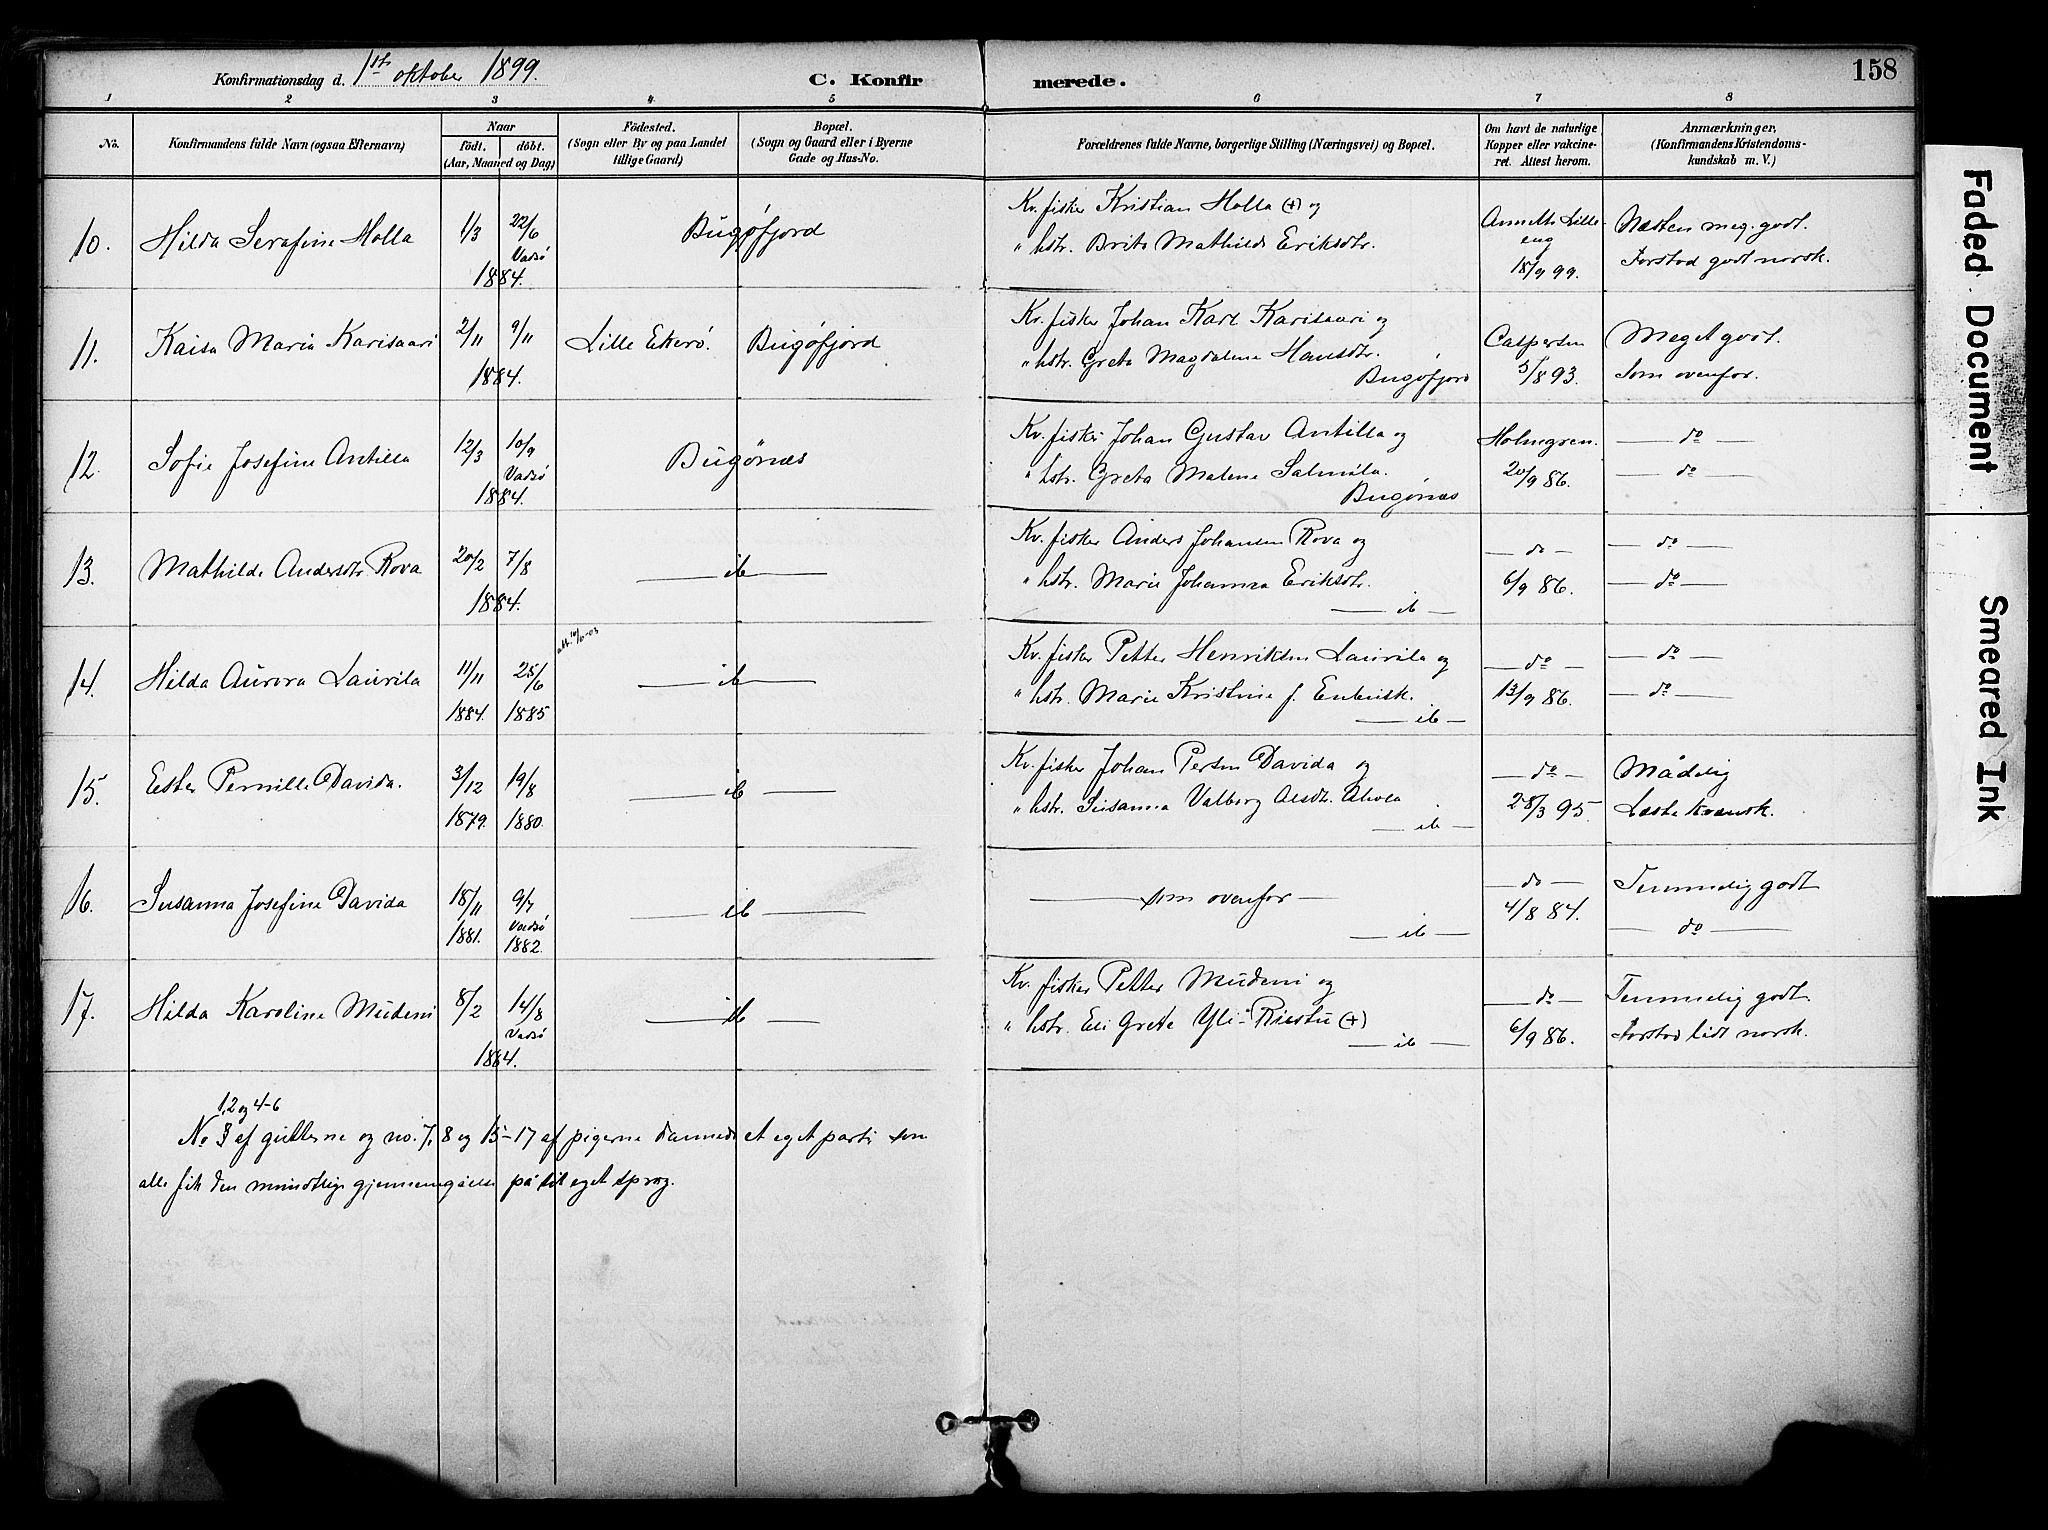 Konfirmationsdag d. 1ste oktober 1899.
C. Konfirmerede.
158
1 2 3 4 5 6 7 8
No.
Konfirmandens fulde Navn (ogsaa Efternavn)
Naar
födt. döbt.
(Aar, Maaned og Dag)
Födested.
(Sogn eller By og paa Landet
tillige Gaard)
Bopæl.
(Sogn og Gaard eller i Byerne
Gade og Hus-No.
Forældrenes fulde Navne, borgerlige Stilling (Næringsvei) og Bopæl.
Om havt de naturlige
Kopper eller vakcine-
ret. Attest herom.
Anmærkninger,
(Konfirmandens Kristendoms-
kundskab m. V.)
10. Hilda Serafine Holla 1/3 22/6 Vadsö 1884. Bugøfjord
Kv. fisker Kristian Holla (+) og
" hstr. Brita Mathilde Eriksdtr.
Anneth Lille-
eng
18/9 99.
Næsten meg. godt.
Forstod godt norsk.
11. Kaisa Maria Karisaari 2/11 9/11 1884. Lille Ekerö. Bugøfjord
Kv. fisker Johan Karl Karisaari og
" hstr. Greta Magdalena Hansdtr.
Bugøfjord
Caspersen
5/8 93.
Meget godt.
Som ovenfor.
12. Sofie Josefine Antilla 12/3 10/9 Vadsö 1884. Bugønæs
Kv. fisker Johan Gustav Antilla og
" hstr. Greta Malena Salmila.
Bugønæs
Holmgren.
20/9 86.
— do —
— do —
13. Mathilde Andersdtr. Rova 20/2 7/8 1884. — ib —
Kv. fisker Anders Johansen Rova og
" hstr. Marie Johanna Eriksdtr.
— ib —
— do —
6/9 86.
— do —
— do —
14. Hilda Aurora Laurila 11/11 1884. 25/6 1885 — ib —
Kv. fisker Petter Henriksen Laurila og
" hstr. Marie Kristine f.
— ib —
— do —
13/9 86.
— do —
— do —
15. Ester Pernille Davida. 3/12 1879. 19/8 1880. — ib —
Kv. fisker Johan Persen Davida og
" hstr. Susanna Valborg
— ib —
— do —
28/3 95.
Mådelig
Læste kvænsk.
16. Susanna Josefine Davida 18/11 1881. 9/7 Vadsö 1882. — ib —
— som ovenfor —
— ib —
— do —
4/8 84.
Temmelig godt
— do —
17. Hilda Karoline Mudeni 8/2 14/8 Vadsö 1884. — ib —
Kv. fisker Petter Mudeni og
" hstr. Eli Greta Yli-Riestu (+)
— ib —
— do —
6/9 86.
Temmelig godt.
Forstod lidt norsk.
1, 2 og 4-6
No 3 af gutterne og no. 7, 8 og 15-17 af pigerne dannede et eget parti som
alle fik den mundtlige gjennemgåelse på sit eget sprog.
Faded Document
Smeared Ink